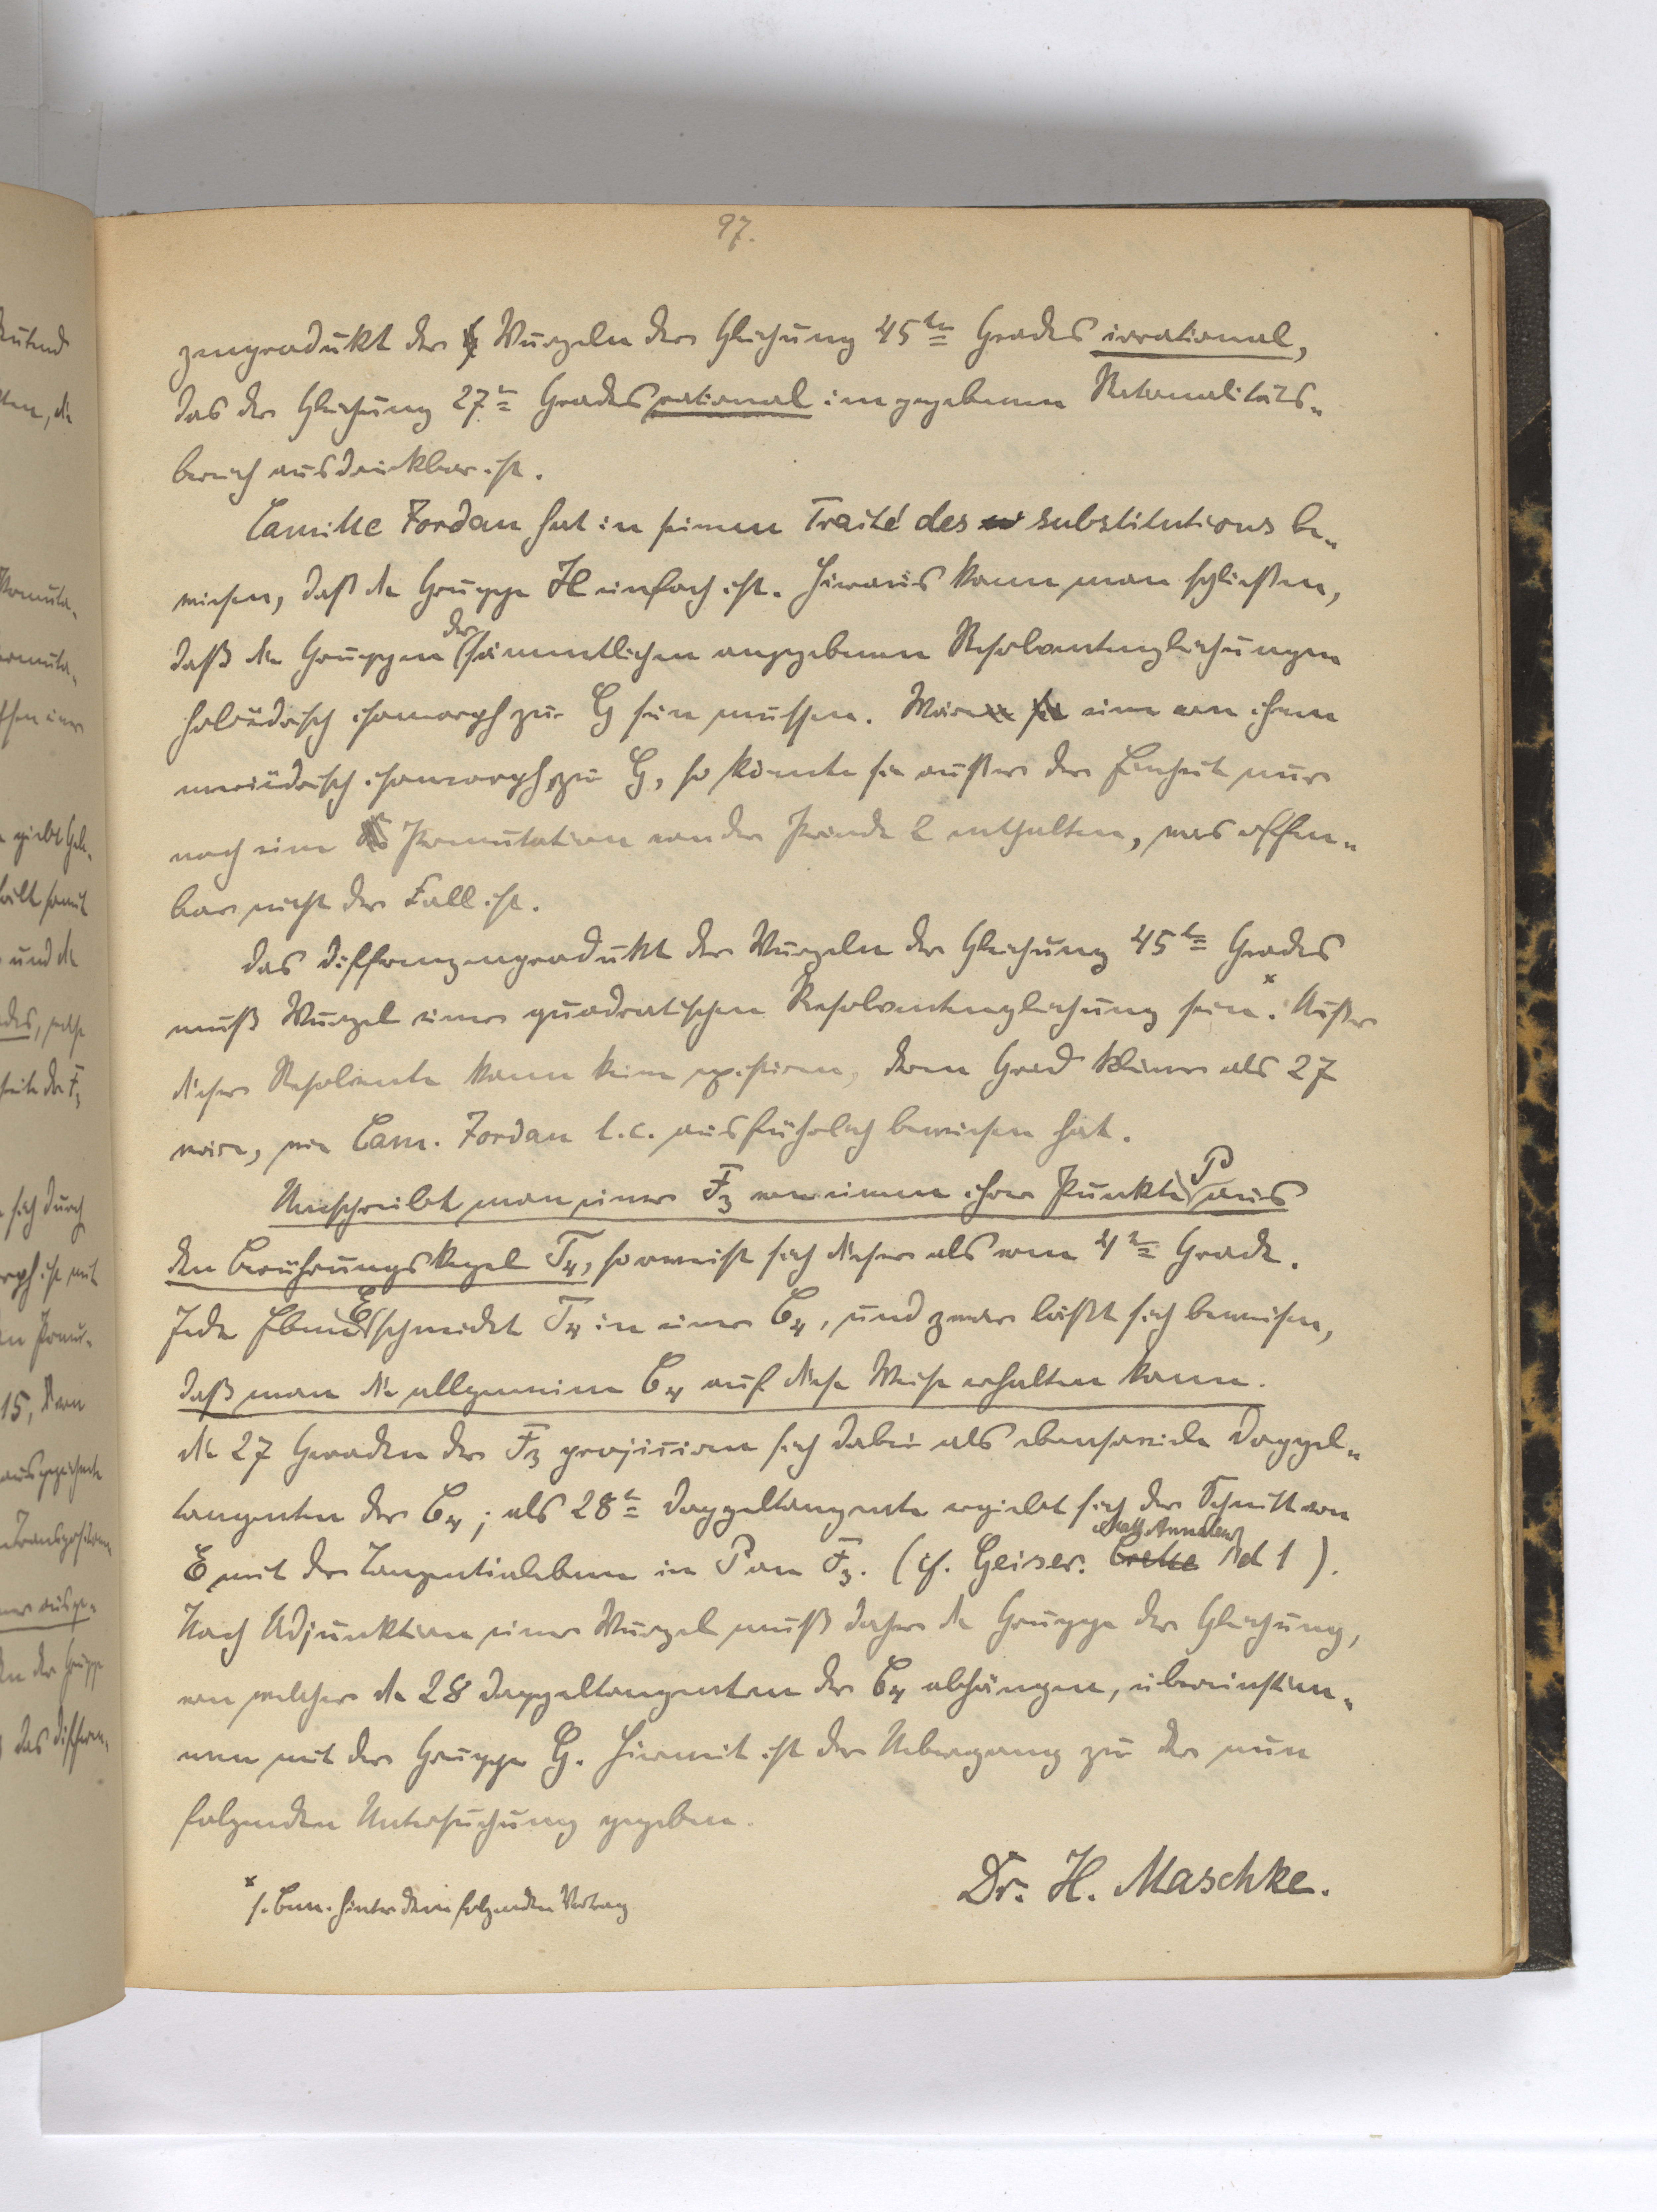 97.
zenprodukt der Wurzeln der Gleichung 45ten Grades irrational,
das der Gleichung 27ten Grades rational im gegebenen Rationalitäts-
bereich ausdrückbar ist.
Camille Jordan hat in seinem Traité des substitutions be-
wiesen, daß die Gruppe H einfach ist. Hieraus kann man schließen,
daß die Gruppen der sämmtlichen angegebenen Resolventengleichungen
holoëdrisch isomorph zu G sein müssen. Wäre eine von ihnen
merïedrisch isomorph zu G, so könnte sie außer der Einheit nur
noch eine Permutation von der Periode 2 enthalten, was offen-
bar nicht der Fall ist.
Das Differenzenprodukt der Wurzeln der Gleichung 45ten Grades
muß Wurzel einer quadratischen Resolventengleichung sein.x Außer
dieser Resolvente kann keine existiren, deren Grad kleiner als 27
wäre, wie Cam. Jordan l.c. ausführlich bewiesen hat.
Umschreibt man einer F3 von einem ihrer Punkte P aus
den Berührungskegel T4, so erweist sich dieser als vom 4ten Grade.
Jede Ebene E schneidet T4 in einer C4, und zwar läßt sich beweisen,
daß man die allgemeine C4 auf diese Weise erhalten kann.
Die 27 Geraden der F3 projiciren sich dabei als ebensoviele Doppel-
tangenten der C4; als 28te Doppeltangente ergiebt sich der Schnitt von
E mit der Tangentialebene in P an F3. (cf. Geiser. Crelle Math. Annalen Bd 1).
Nach Adjunktion einer Wurzel muß daher die Gruppe der Gleichung,
von welcher die 28 Doppeltangenten der C4 abhängen, übereinstim-
men mit der Gruppe G. Hiermit ist der Uebergang zu der nun
folgenden Untersuchung gegeben.
Dr. H. Maschke.
x s. Bem. hinter dem folgenden Vortrag